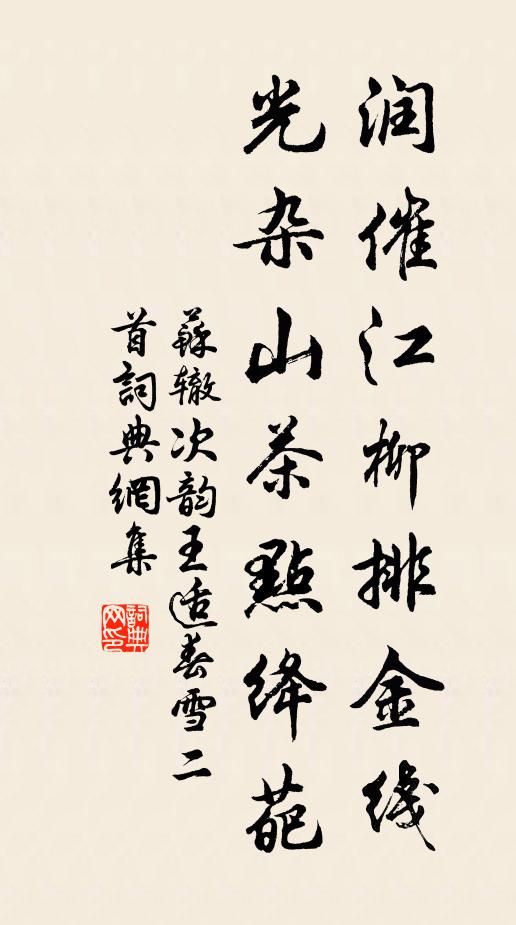 润催江柳排金线
光杂山茶點绛葩
蘇辙次韵王适春雪二
首詞典網集
詞典網印